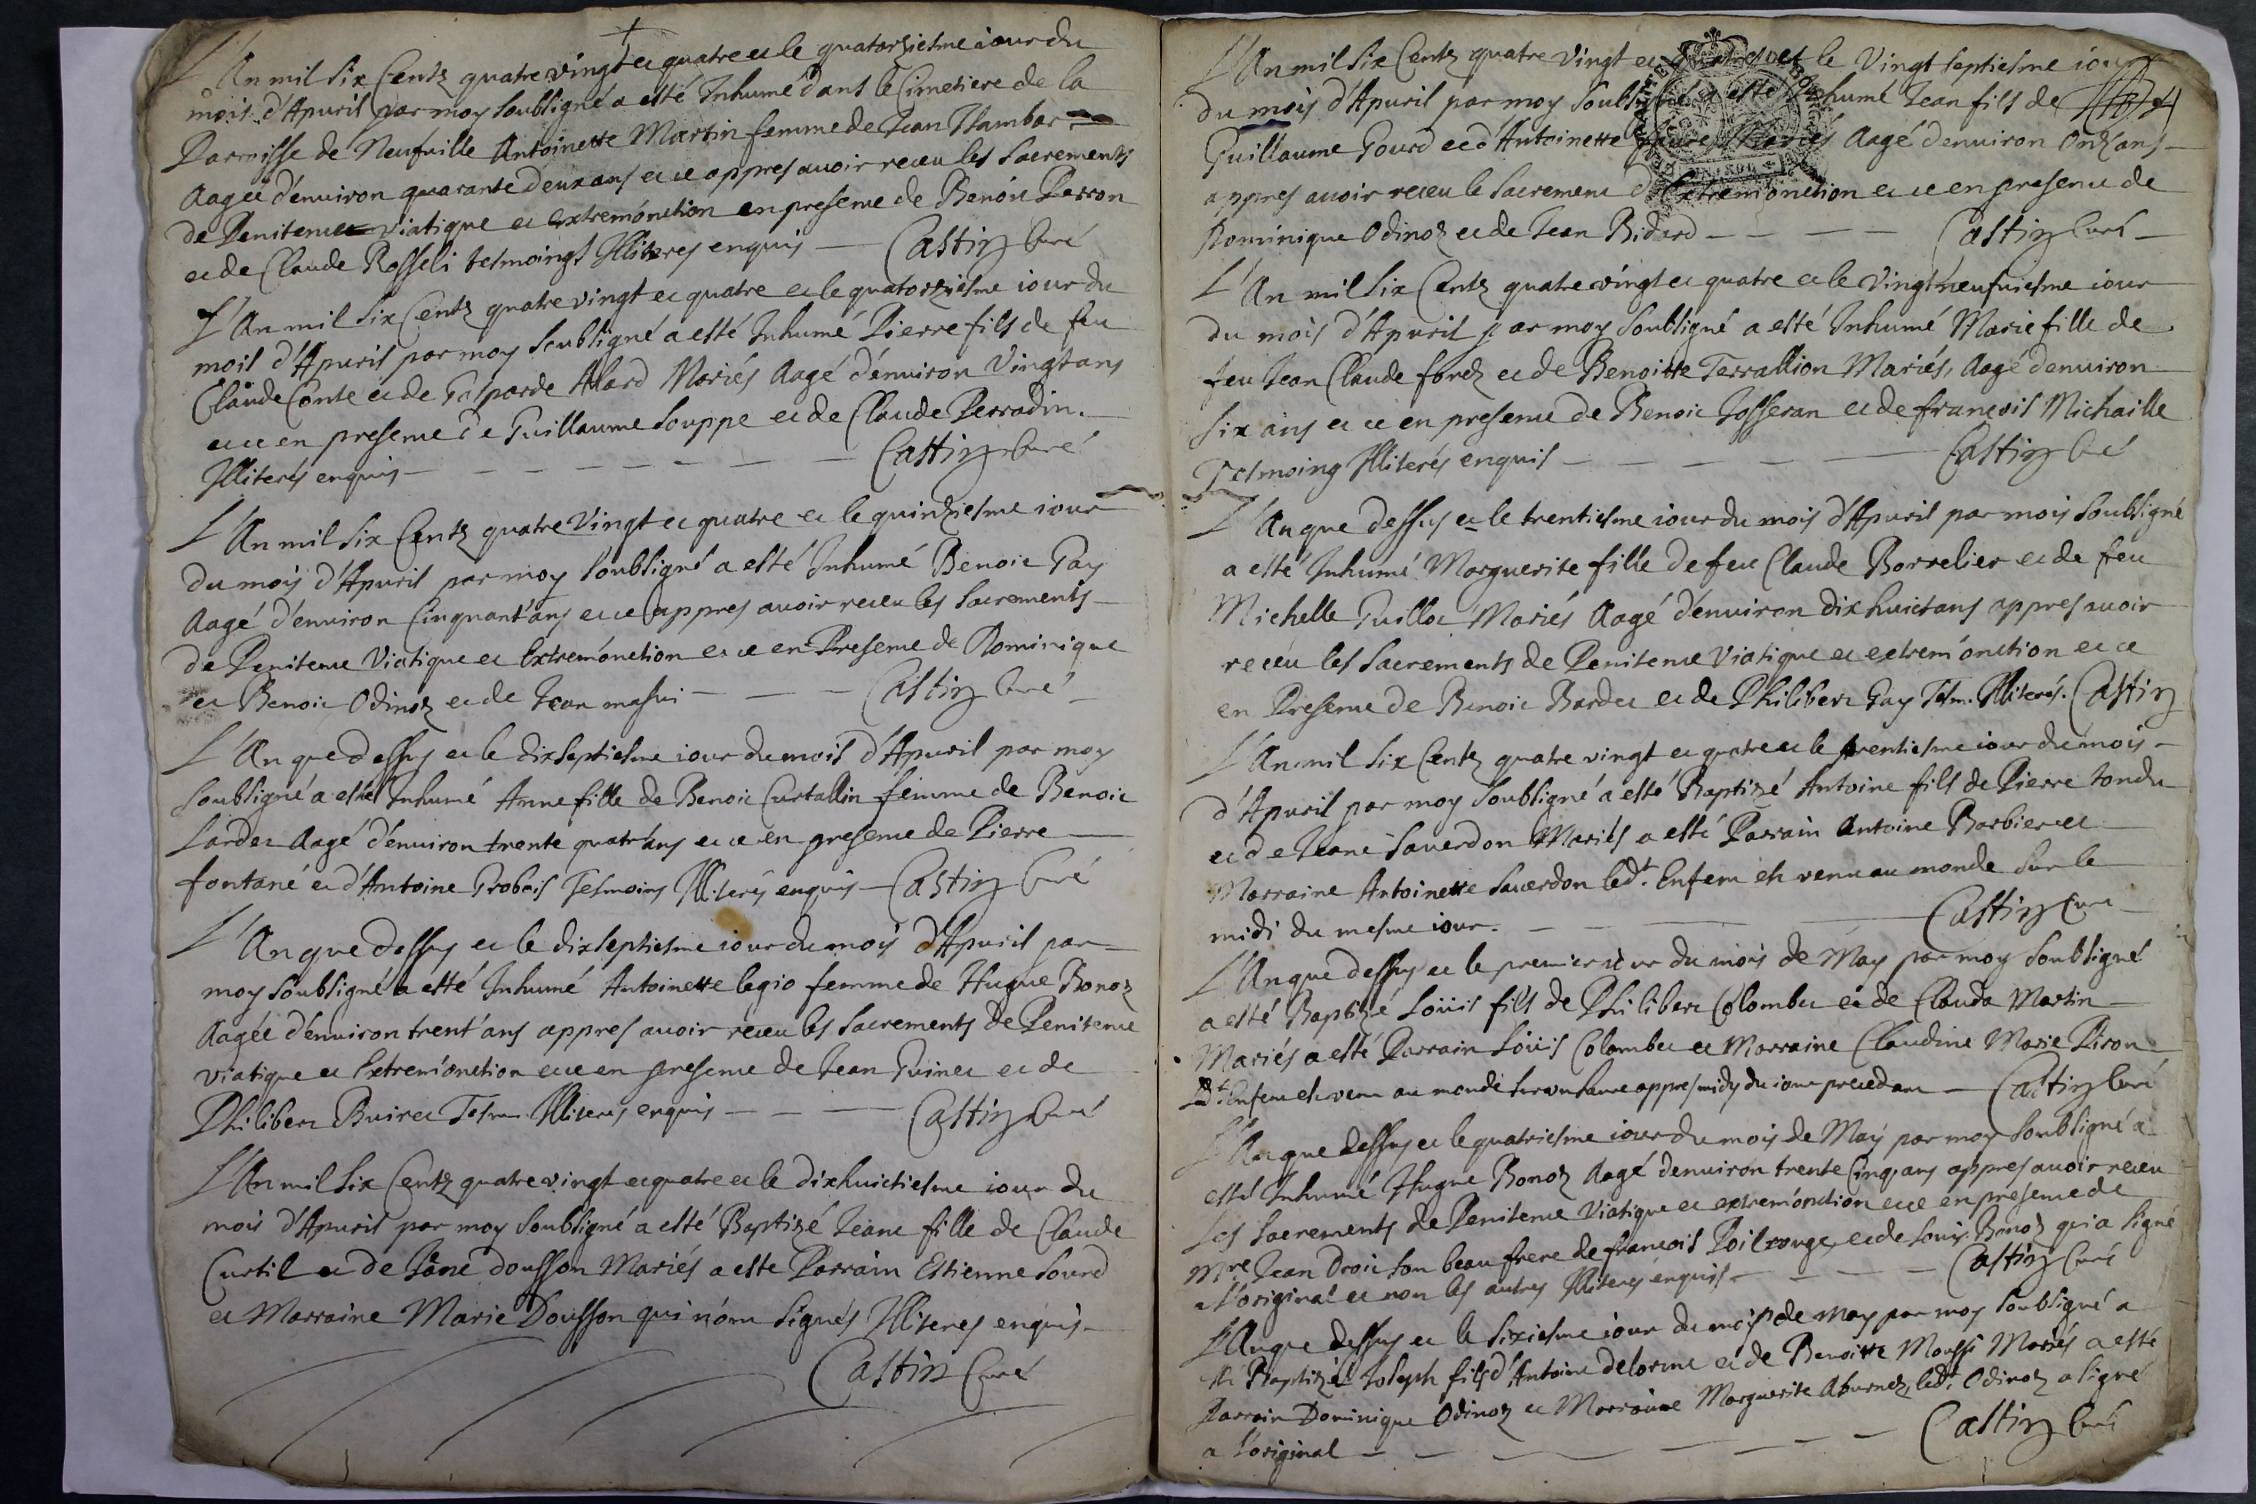 L'An mil six Centz quatre vingt et quatre et le quatorziesme iour du
mois d'Apuril par moy soubsigné a esté Inhumé dans le Cimetiere de la
Parroisse de Neufuille Antoinette Martin femme de Jean
Aagée d'enuiron quarante deux ans et ce appres auoir receu les sacrements
de Penitence viatique et extremónction en presence de Benoit Perron
et de Claude Rosseli tesmoings Illiterés enquis — Castin Curé
L'An mil six Centz quatre vingt et quatre et le quatorziesme iour du
mois d'Apuril par moy soubsigné a esté Inhumé Pierre fils de feu
Claude Conte et de Gasparde Alard Mariés Aagé d'énuiron Vingt ans
et ce en presence de Guillaume Souppe et de Claude Perradin.
Illiterés enquis — — — — — — — — Castin Curé
L'An mil six Centz quatre Vingt et quatre et le quinziesme iour
du mois d'Apuril par moy soubsigné a esté Inhumé Benoit Gay
Aagé d'énuiron Cinquant'ans et ce appres auoir receu les sacrements
de Penitence Viatique et Extremónction et ce en Presence de Dominique
et Benoit Odinoz et de Jean masui — — — Castin Curé
L'An que dessus et le dixseptiesme iour du mois d'Apuril par moy
soubsigné a esté Inhumé Anne fille de Benoit Curtallin femme de Benoit
Lardet Aagé d'énuiron trente quatr'ans et ce en presence de Pierre
fontané et d'Antoine Grobois Tesmoins Illiterés enquis — Castin Curé
L'An que dessus et le dixseptiesme iour du mois d'Apuril par
moy soubsigné a esté Inhumé Antoinette legio femme de Hugue Bonoz
Aagée d'énuiron trent'ans appres auoir receu les sacrements de Penitence
viatique et Extremónction et ce en presence de Jean Guinet et de
Philibert Buiret Tesm. Illiterés enquis — — — — Castin Curé
L'An mil six Centz quatre vingt et quatre et le dixhuictiesme iour du
mois d'Apuril par moy soubsigné a esté Baptizé Jeane fille de Claude
Curtil et de Jáne dousson Mariés a esté Parrain Estienne Sourd
et Marraine Marie Dousson qui n'ont signés Illiteres enquis
Castin Curé
L'An mil six Centz quatre Vingt et quatre et le Vingt septiesme iour
du mois d'Apuril par moy soubsigné a esté Inhumé Jean fils de
Guillaume Gourd et d'Antoinette Mariés Aagé d'enuiron Onz'ans
appres auoir receu le sacrement d'Extremónction et ce en presence de
Dominique Odinoz et de Jean Bidard — — — — Castin Curé
L'An mil six Centz quatre vingt et quatre et le Vingtneufuiesme iour
du mois d'Apuril par moy soubsigné a esté Inhumé Marie fille de
feu Jean Claude forez et de Benoitte Terrallion Mariés, Aagé d'enuiron
six ans et ce en presence de Benoit Josseran et de francois Michaille
Tesmoing Illiterés enquis — — — — — Castin Cré
L'An que dessus et le trentiesme iour du mois d'Apuril par mois soubsigné
a esté Inhumé Marguerite fille de feu Claude Borrelier et de feu
Michelle Guillot Mariés Aagé d'énuiron dix huict ans appres auoir
receu les sacrements de Penitence Viatique et extremónction et ce
en Presence de Benoit Bardet et de Philibert Gay Tesm. Illiterés. Castin
L'An mil six Centz quatre vingt et quatre et le trentiesme iour du mois
d'Apuril par moy soubsigné a esté Baptizé Antoine fils de Pierre tondu
et de Jeane Sauerdon Mariés a esté Parrain Antoine Barbier et
Marraine Antoinette Sauerdon led.t Enfent est venu au monde sur le
midi du mesme iour. — — — — Castin Curé
L'An que dessus et le premier iour du mois de May par moy soubsigné
a esté Baptizé Loüis fils de Philibert Colombet et de Clauda Martin
Mariés a esté Parrain Loüis Colombet et Marraine Claudine Marie Piron
appres midy du iour precedant — Castin Curé
L'An que dessus et le quatriesme iour du mois de May par moy soubsigné a
esté Inhumé Hugue Bonoz Aagé d'enuiron trente Cinq ans appres auoir receu
Les sacrements de Penitence Viatique et extremónction et ce en presence de
Mre Jean Droit son beau frere de francois Poilrouge, et de Louis Bonoz qui a signé
a l'original et non les autres Illiteres enquis — — — — Castin Curé
L'An que dessus et le sixiesme iour du mois de may par moy soubsigné a
esté Baptizé Joseph fils d'Antoine delorme et de Benoitte Moussi Mariés a esté
Parrain Dominique Odinoz et Marraine Marguerite led.t Odinoz a signé
a l'original — — — — — — Castin Curé